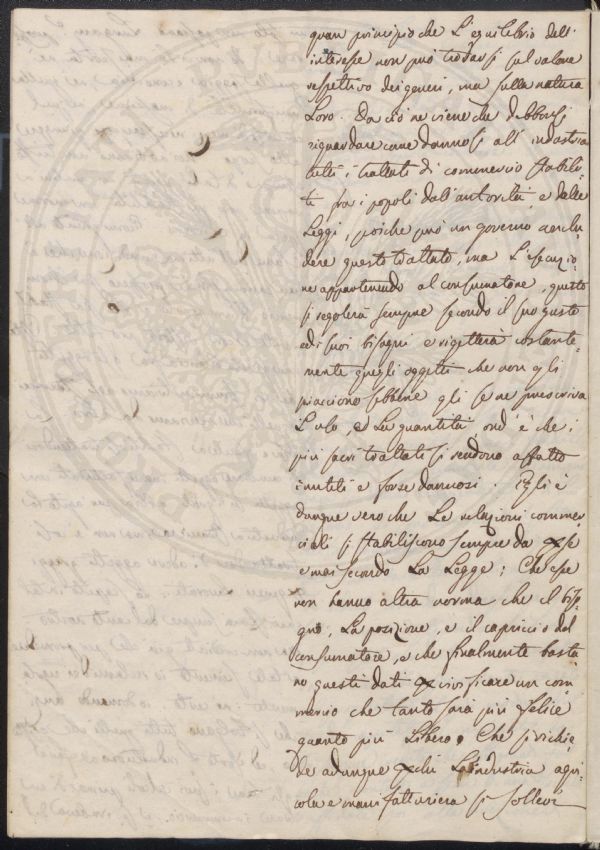 gran principio che L'equilibrio dell'
interesse non può trovarsi sul valore
rispettivo dei generi, ma sulla natura
Loro. Da ciò ne viene che debbonsi
riguardare come dannosi all'industria
tutti i trattati di commercio stabili-
ti fra i popoli dall'autorità e dalle
Leggi, poiche può un governo conclu-
dere questo trattato, ma L'esecuzio-
ne appartenendo al consumatore, questo
si regolerà sempre secondo il suo gusto
ed i suoi bisogni e rigetterà costante-
mente quegli oggetti che non gli
piacciono sebbene gli se ne prescriva
L'uso, e La quantità, ond'è che i
più sacri trattati si rendono affatto
inutili e forse dannosi. Egli è
dunque vero che Le relazioni commer-
ciali si stabiliscono sempre da se
e mai secondo La Legge; Che esse
non hanno altra norma che il biso-
gno, La posizione, e il capriccio del
consumatore, e che finalmente basta-
no questi dati p vivificare un com-
mercio che tanto sara più felice
quanto più Libero. Che si richie-
de adunque p chè L'industria agri-
cola e manifatturiera si sollevi